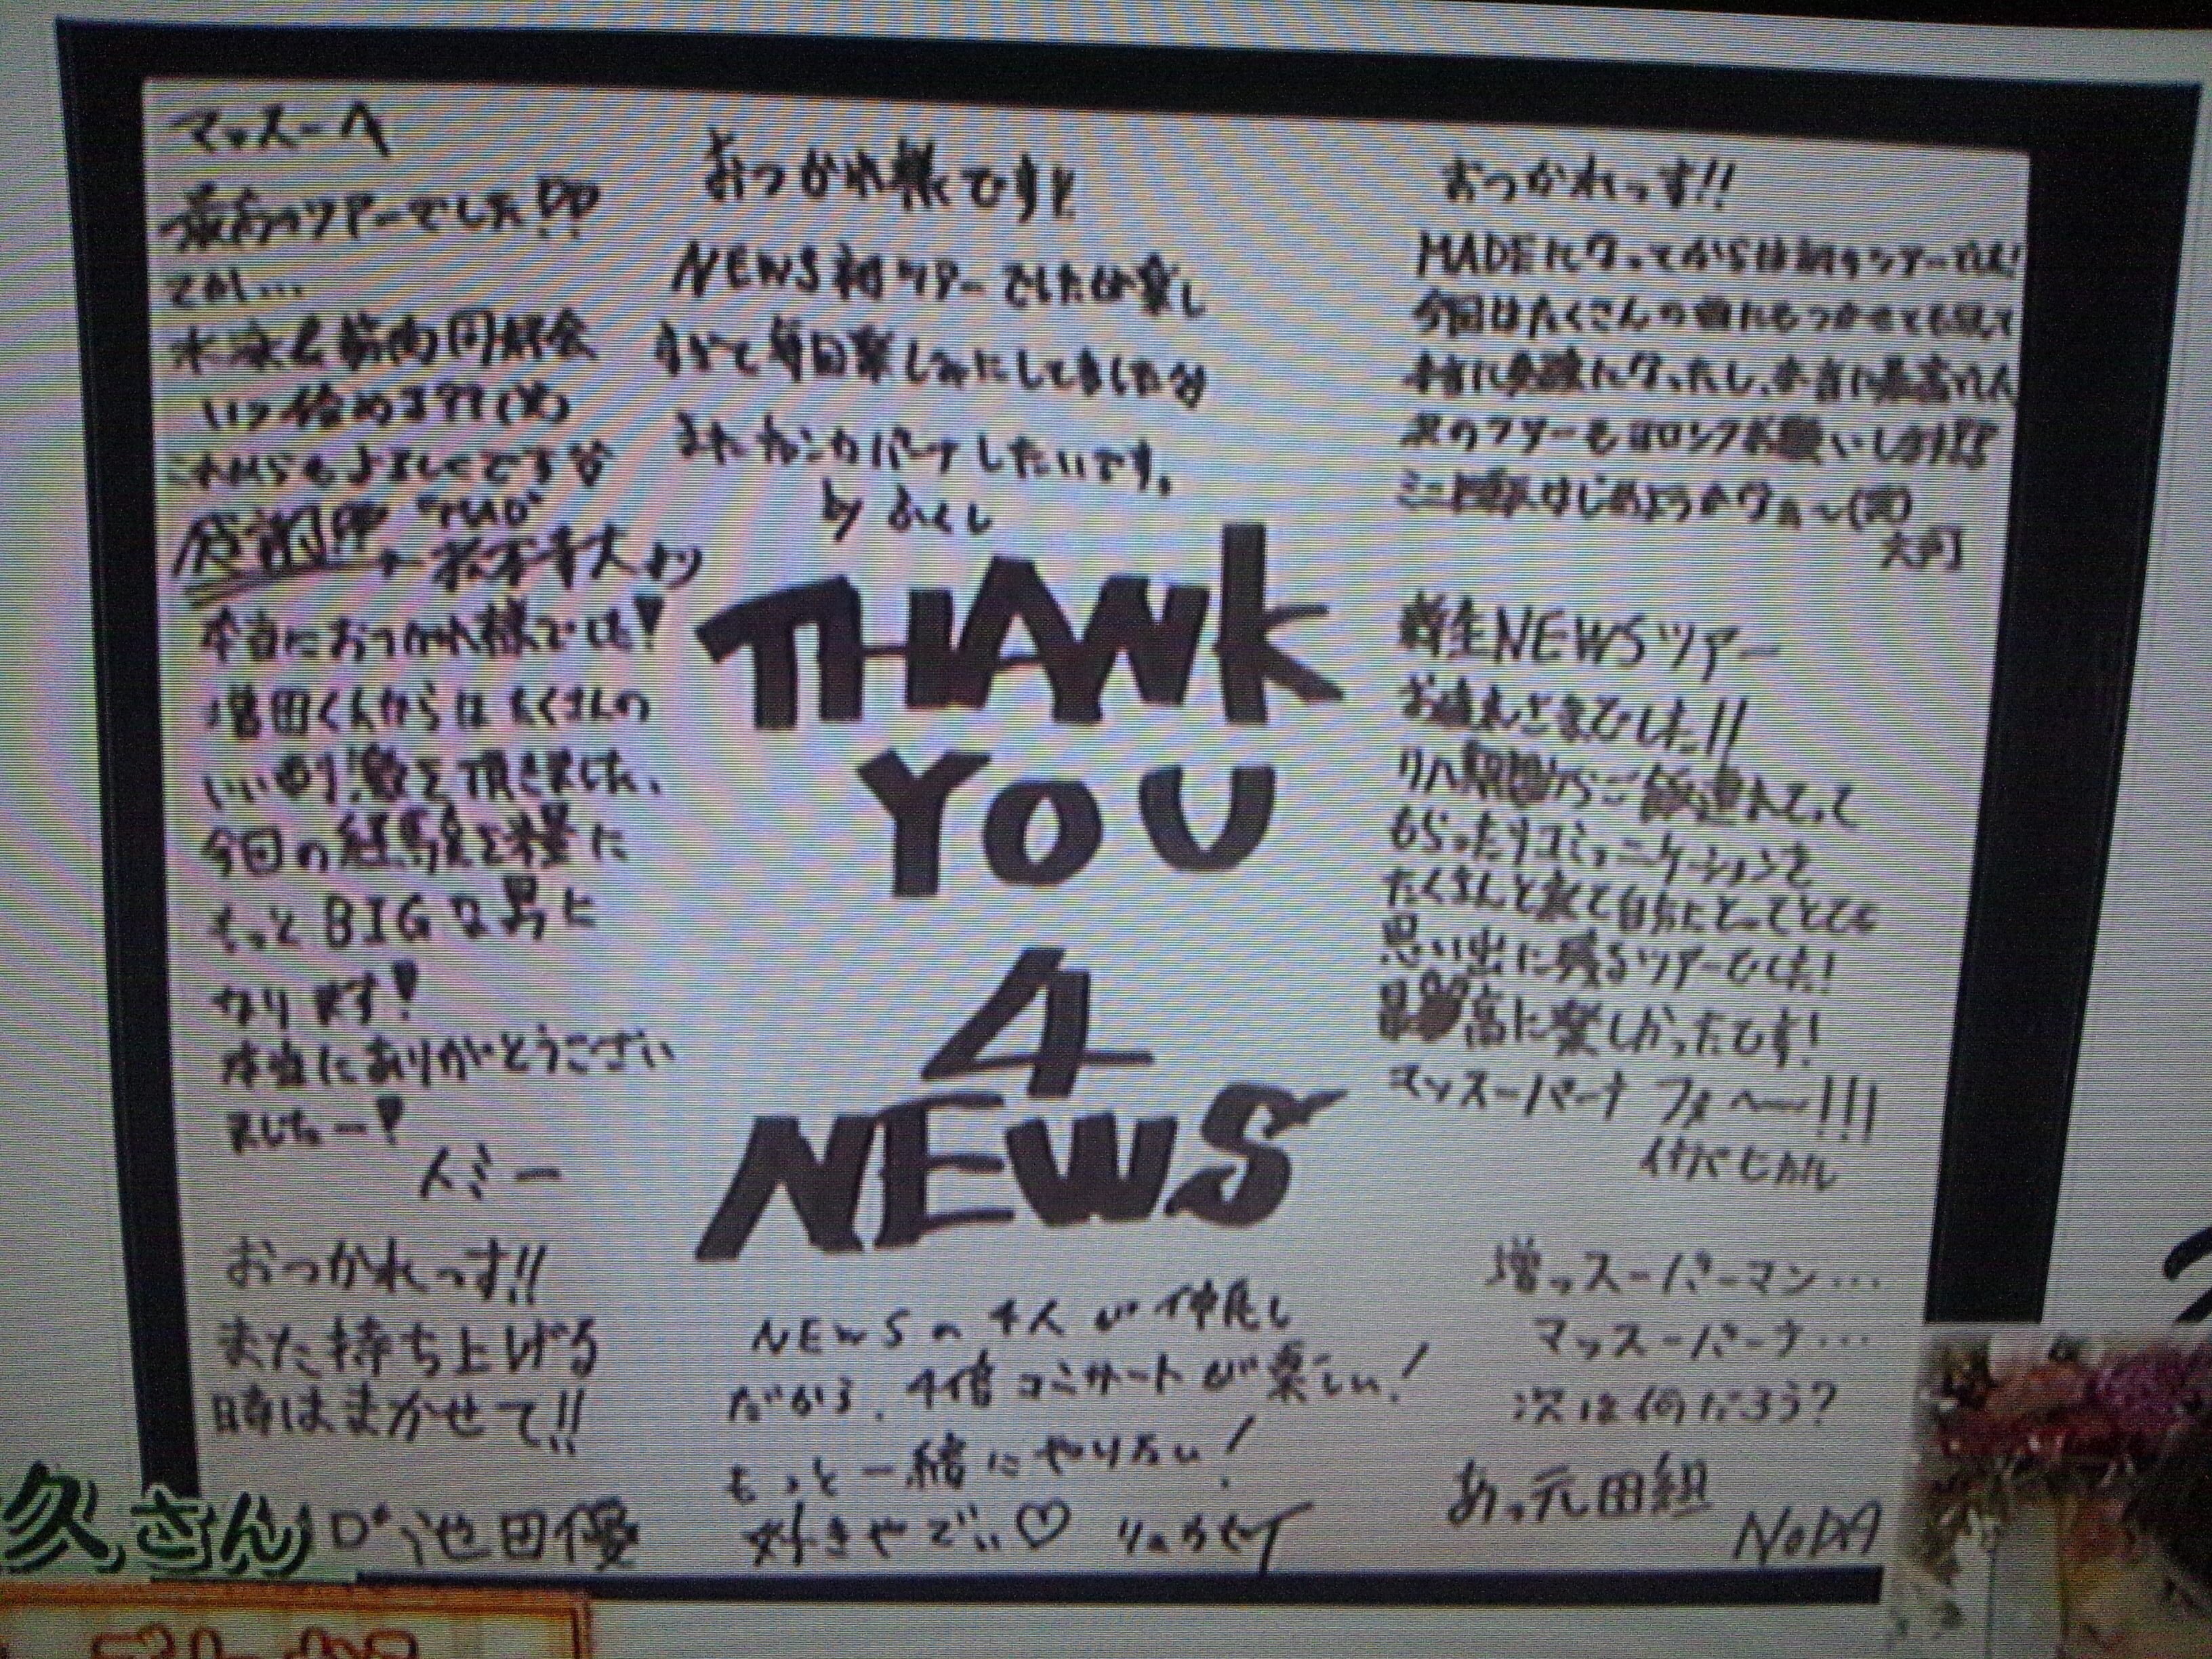 マッスーへ
最高のツアーでした!!
てか....
筋肉同好会
いつ始める??(笑)
これからもよろしくです
本当におつかれ様でした!
増田くんからはたくさんの
いい刺激を頂きました、
今回の経験を糧に
もっとBIGな男に
なります!
本当にありがとうござい
ましたー!
おっかれっす!!
また持ち上げる
時はまかせて!!
池田優
おつかれ様です!!
NEWS初ツアーでしたが楽し
すぎて毎日楽しみにしてました
またチンカパーナしたいです。
by ふくし
THANK
YOU
4
NEWS
NEWSの4人が仲良し
だから、4倍コンサートが楽しい!
もっと一緒にやりたい!
好きやでぃ♡ りゅうせい
おつかれっす!!
MADEになってからは初のツアー
今回はたくさんの曲にもつかせてもらって
本当に になったし、本当に最高
次のツアーもヨロシクお願いします!!
はじめようかなぁ〜(笑)
新生NEWSツアー
お疲れさまでした!!
リハ期間からご飯連れてって
もらったりコミュニケーションを
たくさんと れて自分にとってとても
思い出に残るツアーでした!
最高に楽しかったです!
マッスーパーナ フォ〜〜!!!
イナバヒカル
増ッスーパーマン…
マッスーパーナ…
次は何だろう?
あっ元田組
NODA
久さん